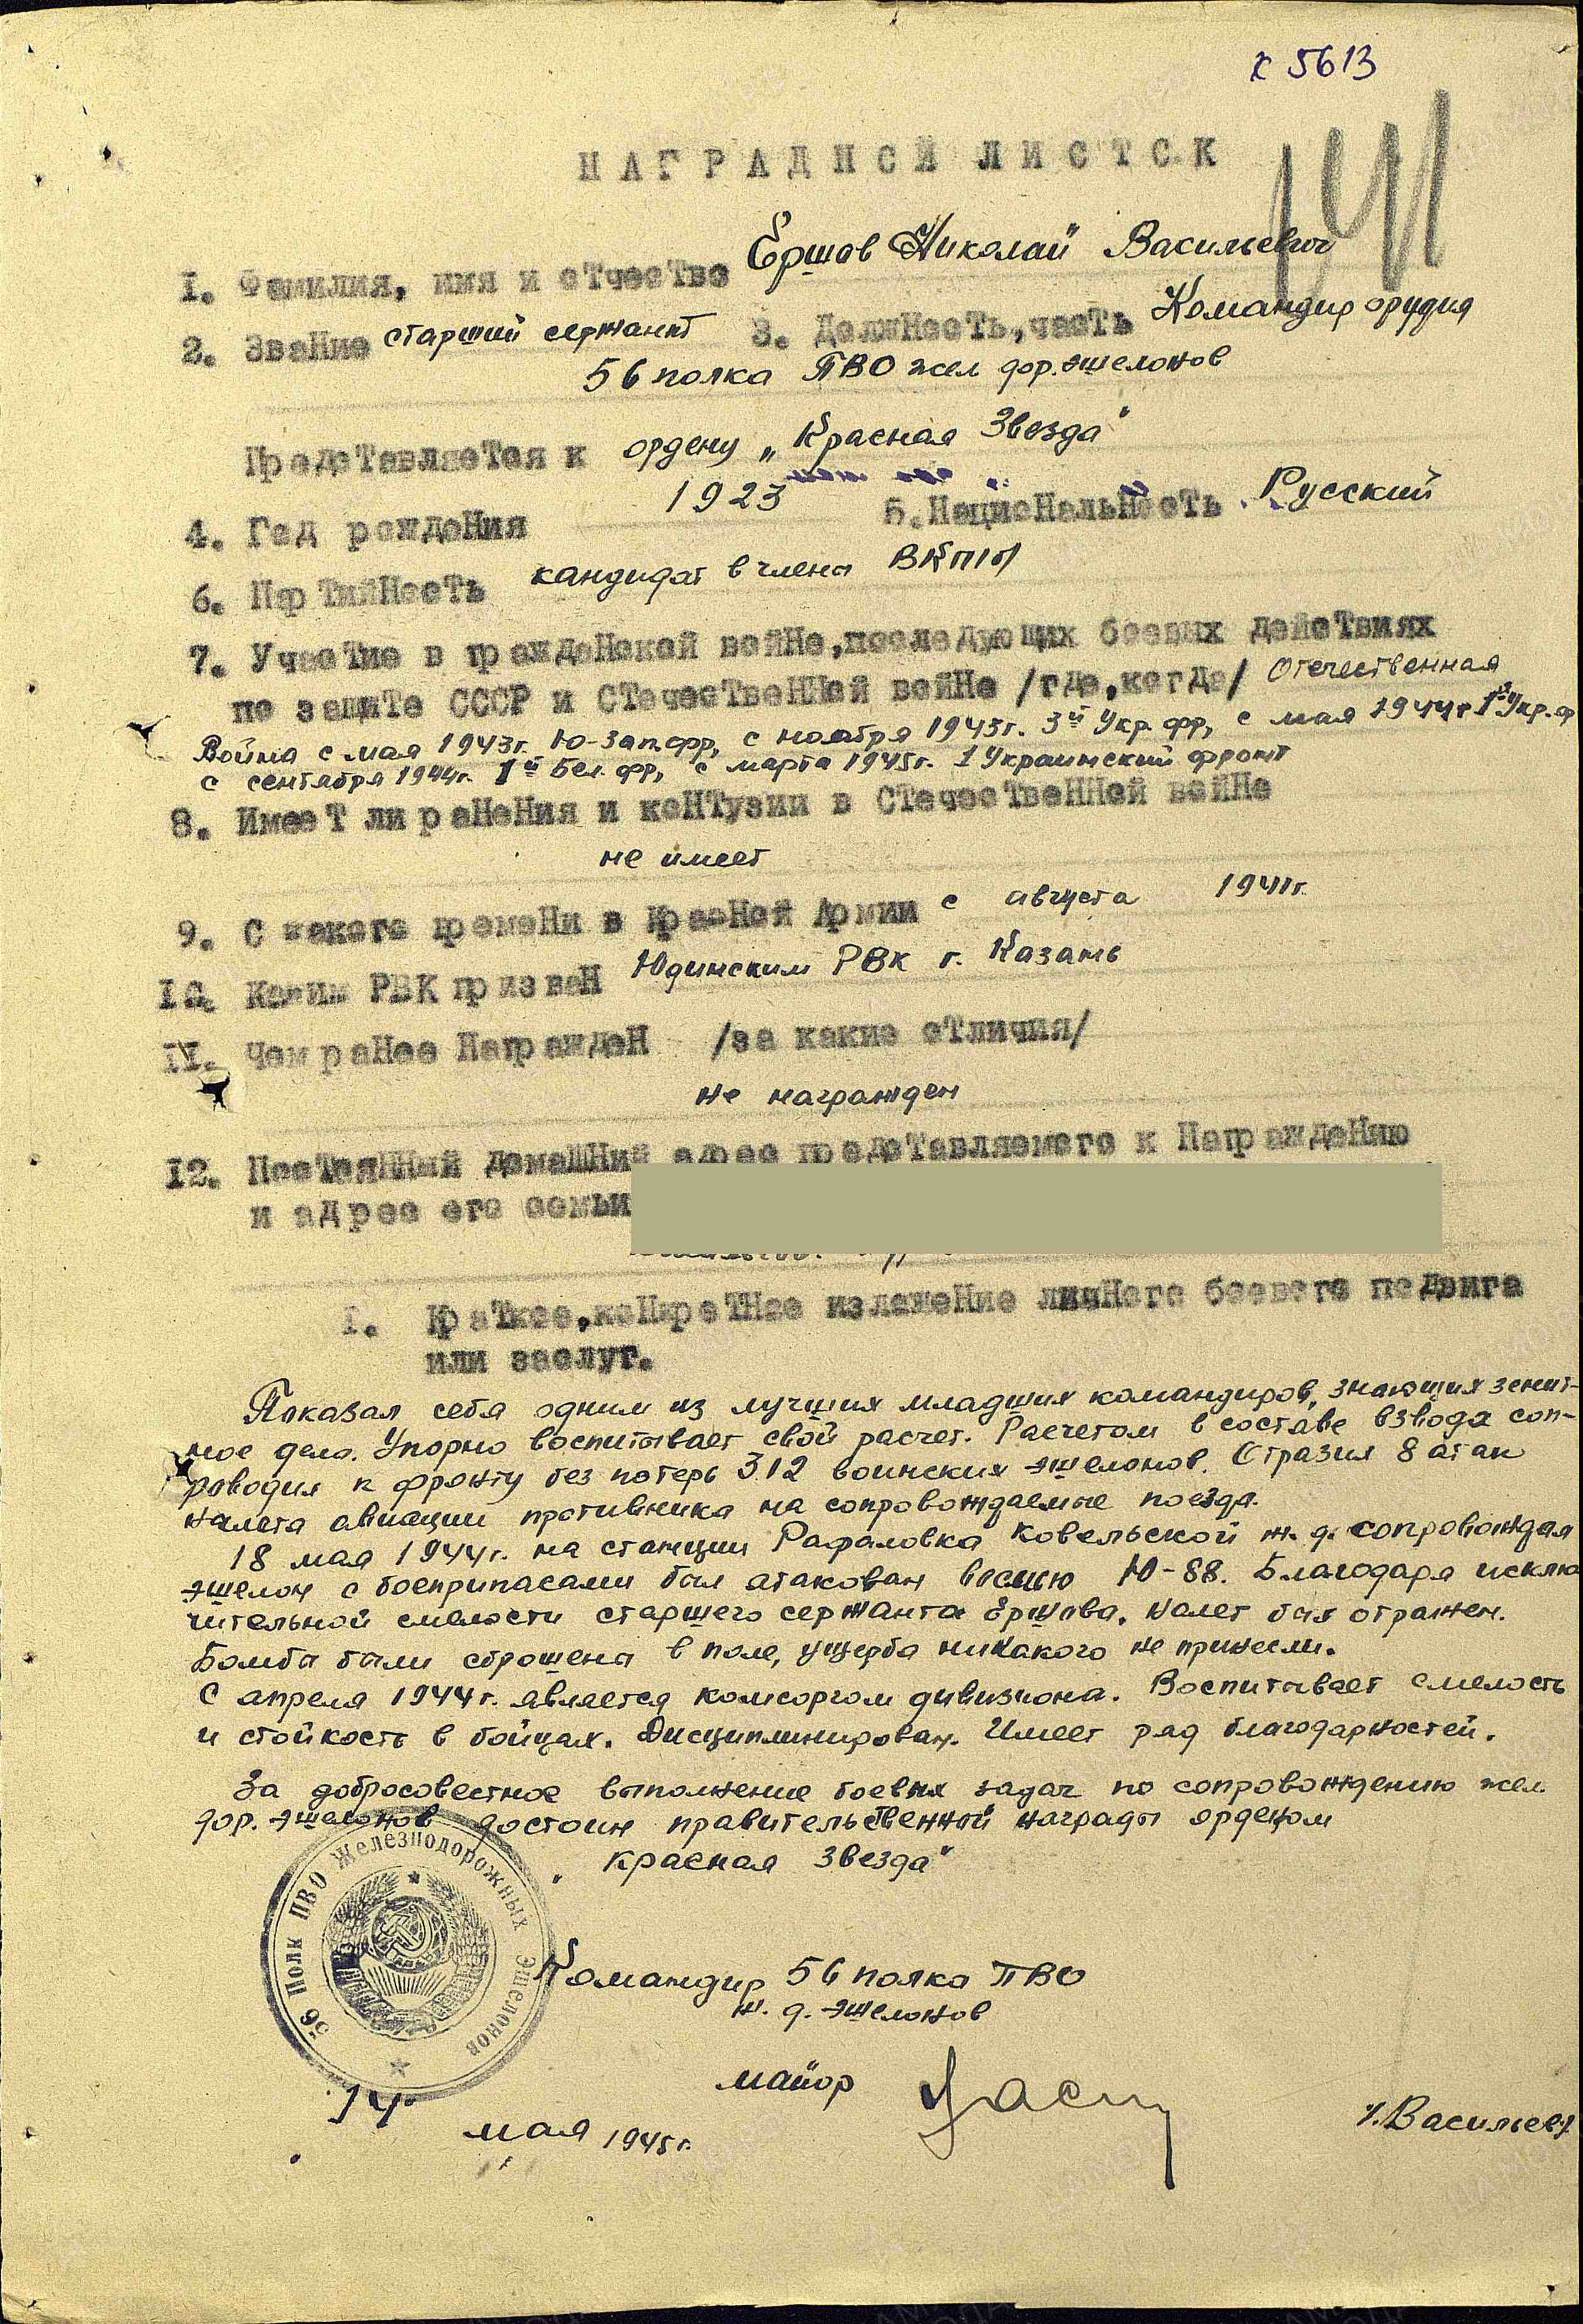 к 5613
НАГРАДНОЙ ЛИСТОК
141
1. Фамилия, имя и отчество Ершов Николай Васильевич
2. Звание старший сержант 3. Должность, часть Командир орудия
56 полка ПВО жел дор. эшелонов
Представляется к ордену „Красная Звезда"
4. Год рождения 1923 5. Национальность Русский
6. Партийность кандидат в члены ВКП/б/
7. Участие в гражданской войне, последующих боевых действиях
по защите СССР и Отечественной войне /где, когда/ Отечественная
Война с мая 1943г. Ю-Зап.фр, с ноября 1943г. 3й Укр. фр, с мая 1944г 1й Укр. ф
с сентября 1944г. 1й Бел. фр, с марта 1945г. 1 Украинский фронт
8. Имеет ли ранения и контузии в Отечественной войне
не имеет
9. С какого времени в Красной Армии с августа 1941г.
10. Каким РВК призван Юдинским РВК г. Казань
11. Чем ранее награжден /за какие отличия/
не награжден
12. Постоянный домашний адрес представляемого к награждению
и адрес его семьи
1. Краткое, конкретное изложение личного боевого подвига
или заслуг.
Показал себя одним из лучших младших командиров, знающих зенит-
ное дело. Упорно воспитывает свой расчет. Расчетом в составе взвода соп-
роводил к фронту без потерь 312 воинских эшелонов. Отразил 8 атак
налета авиации противника на сопровождаемые поезда.
18 мая 1944г. на станции Рафаловка Ковельской ж.д. сопровождая
эшелон с боеприпасами был атакован восмью Ю-88. Благодаря исклю
чительной смелости старшего сержанта Ершова, налет был отражен.
Бомбы были сброшены в поле, ущерба никакого не принесли.
С апреля 1944г. является комсоргом дивизиона. Воспитывает смелость
и стойкость в бойцах. Дисциплинирован. Имеет ряд благодарностей.
За добросовестное выполнение боевых задач по сопровождению жел
дор. эшелонов достоин правительственной награды орденом
„Красная Звезда"
56 Полк ПВО Железнодорожных Эшелонов
Командир 56 полка ПВО
ж.д. эшелонов
майор
/.Васильев/
14
мая 1945г.